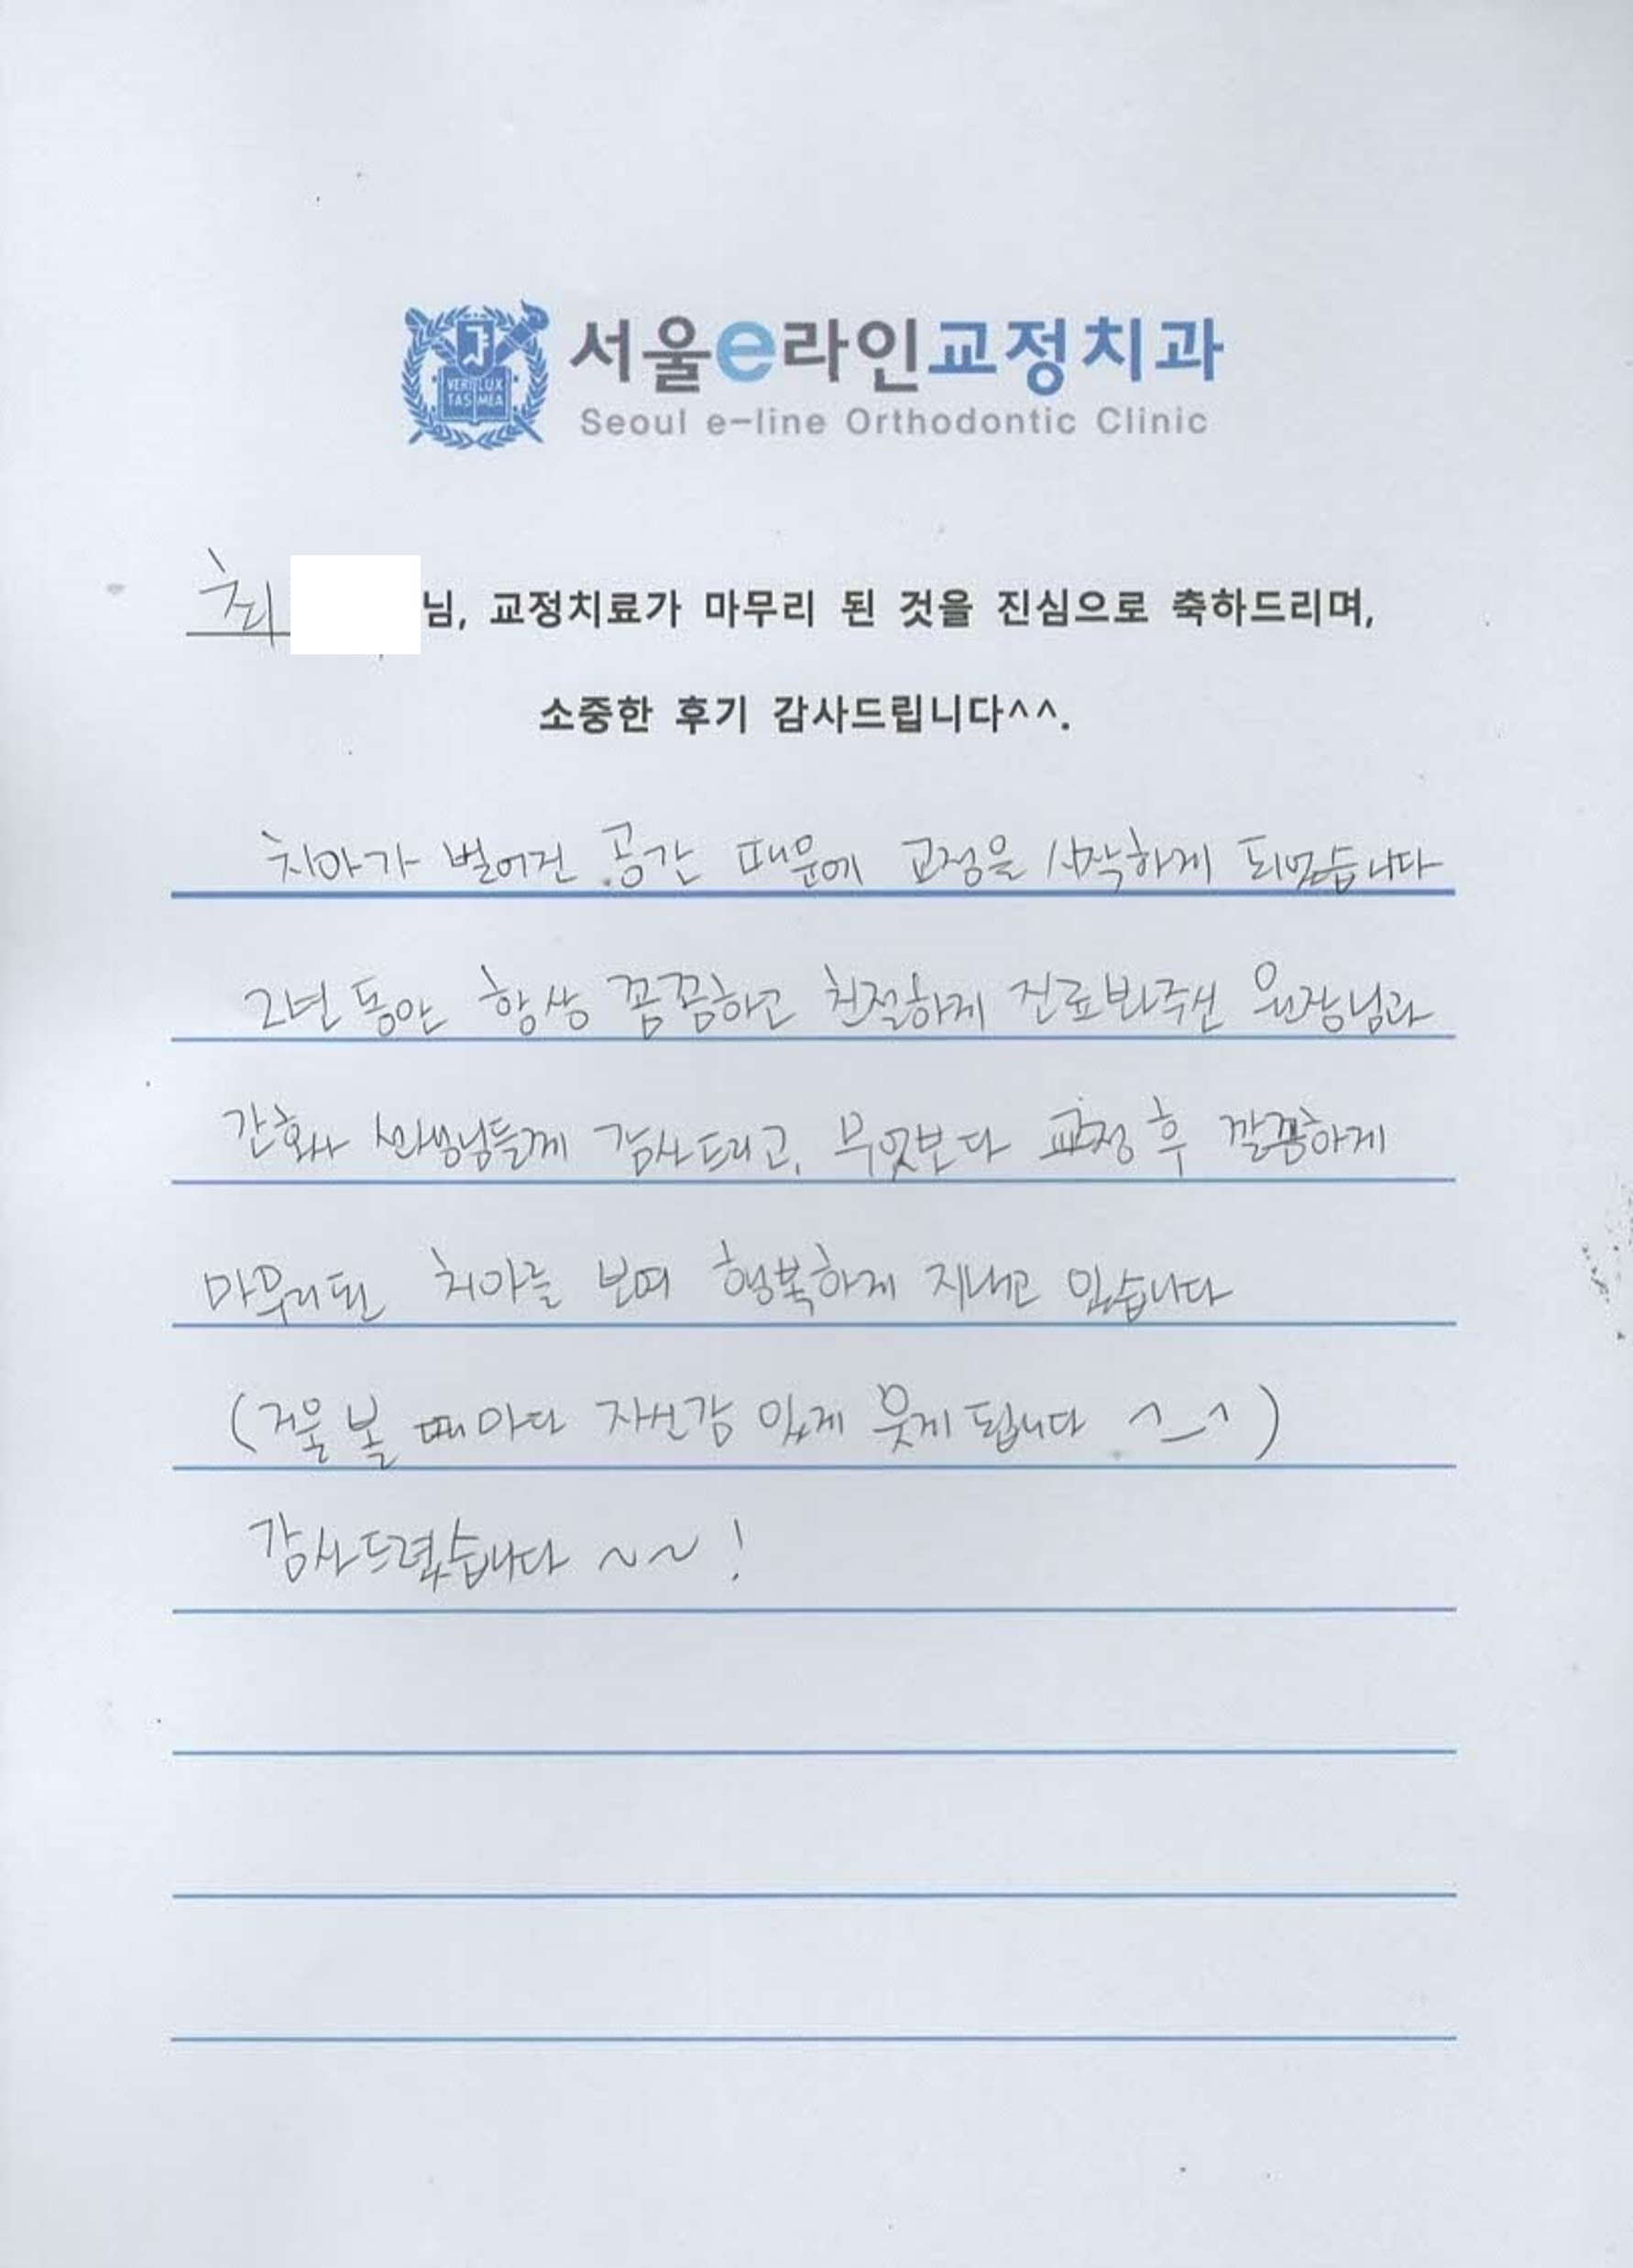 VERI LUX
TAS MEA
서울e라인교정치과
Seoul e-line Orthodontic Clinic
최 님, 교정치료가 마무리 된 것을 진심으로 축하드리며,
소중한 후기 감사드립니다^^.
치아가 벌어진 공간 때문에 교정을 시작하게 되었습니다
2년 동안 항상 꼼꼼하고 친절하게 진료봐주신 원장님과
간호사 선생님들께 감사드리고, 무엇보다 교정 후 깔끔하게
마무리된 치아를 보며 행복하게 지내고 있습니다
(거울 볼 때마다 자신감 있게 웃게 됩니다 ^_^)
감사드렸습니다 ~~!